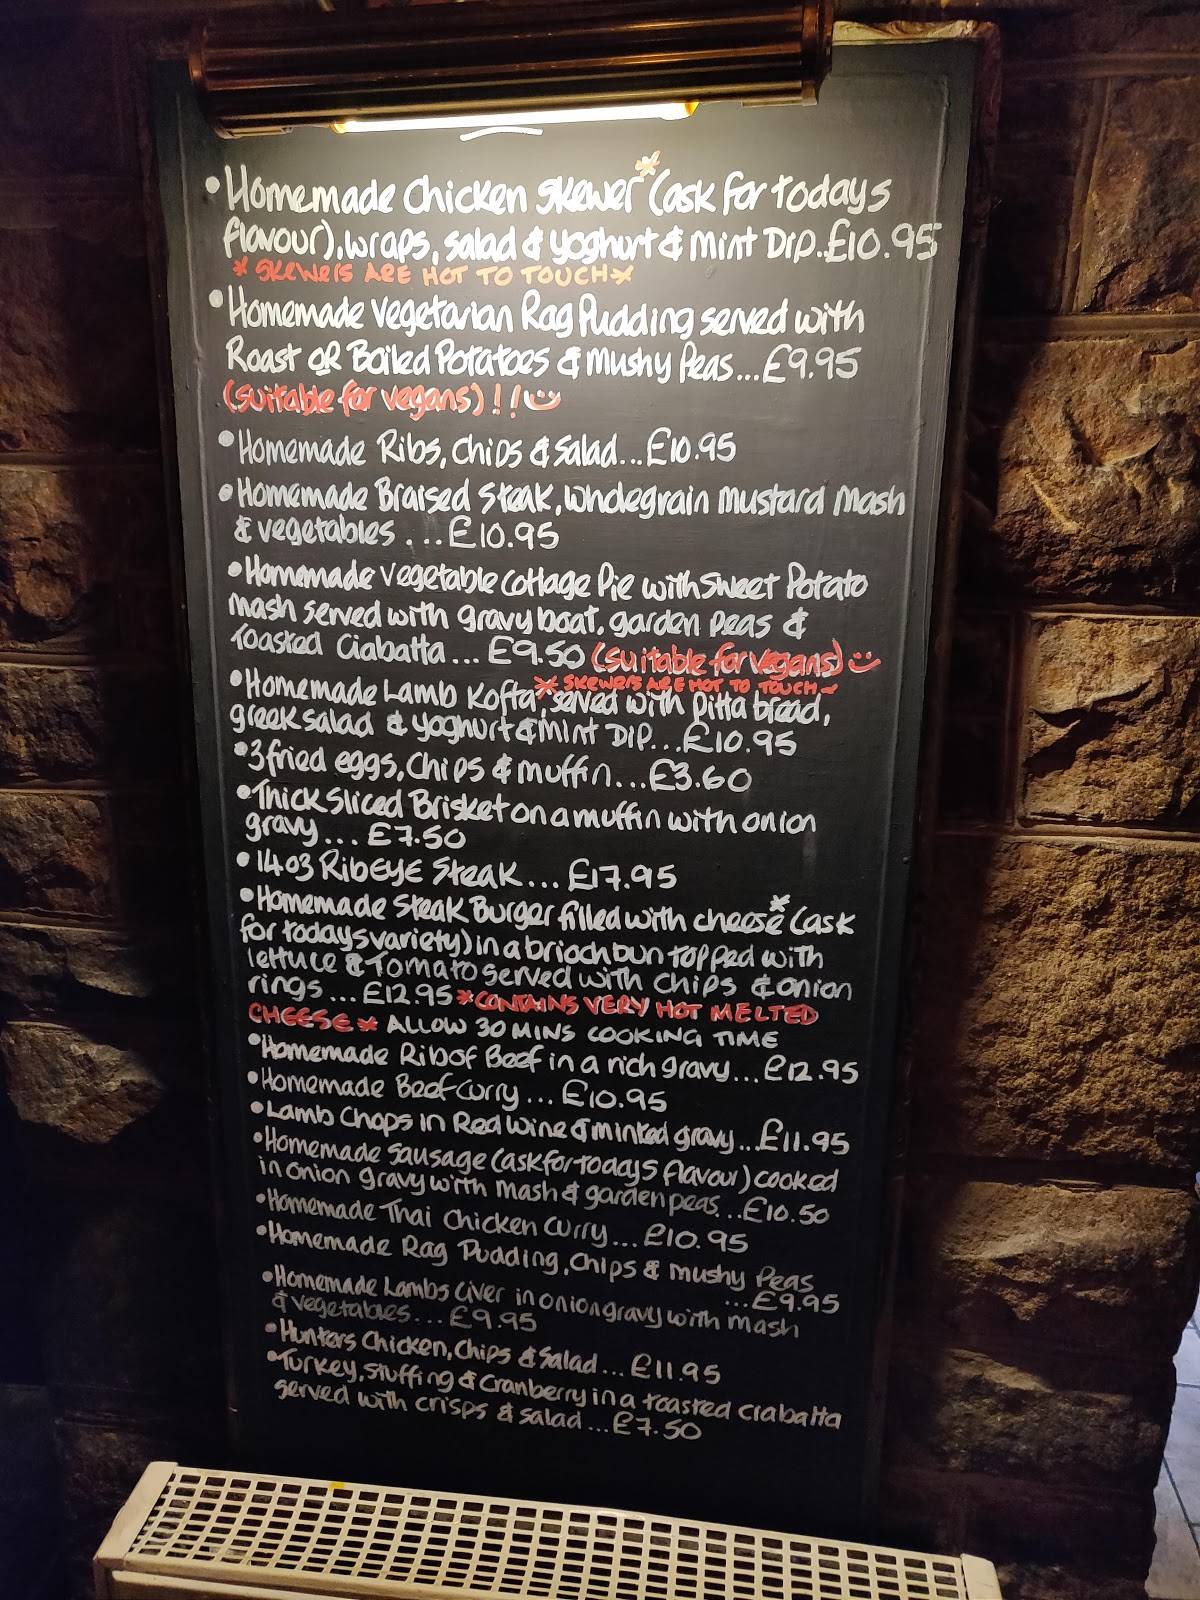 • Homemade Chicken Skewer* (ask for todays
flavour), wraps, salad & yoghurt & Mint Dip..£10.95
* SKEWERS ARE HOT TO TOUCH *
• Homemade Vegetarian Rag Pudding served with
Roast OR Boiled Potatoes & Mushy Peas...£9.95
(suitable for vegans)!!
• Homemade Ribs, Chips & Salad...£10.95
• Homemade Braised Steak, wholegrain mustard mash
& vegetables ....£10.95
• Homemade vegetable Cottage Pie with Sweet Potato
mash served with gravy boat, garden peas &
Toasted Ciabatta... £9.50 (suitable for vegans)
* SKEWERS ARE HOT TO TOUCH *
• Homemade Lamb Kofta*, served with Pitta bread,
greek salad & yoghurt & mint DIP...£10.95
• 3 fried eggs, Chips & muffin...£3.60
• Thick Sliced Brisket on a muffin with onion
gravy... £7.50
• 14oz RibEYE Steak... £17.95
• Homemade Steak Burger filled with cheese* (ask
for todays variety) in a brioch bun topped with
lettuce & Tomato served with Chips & onion
rings... £12.95 *CONTAINS VERY HOT MELTED
CHEESE* ALLOW 30 MINS COOKING TIME
• Homemade Rib of Beef in a rich gravy...£12.95
• Homemade Beef Curry...£10.95
• Lamb Chops in Red Wine & minted gravy...£11.95
• Homemade Sausage (ask for todays flavour) cooked
in onion gravy with mash & garden peas...£10.50
• Homemade Thai Chicken Curry...£10.95
• Homemade Rag Pudding, Chips & mushy Peas
...£9.95
• Homemade Lambs Liver in onion gravy with mash
& vegetables...£9.95
• Hunters Chicken, Chips & Salad...£11.95
• Turkey, stuffing & Cranberry in a toasted ciabatta
served with crisps & salad...£7.50